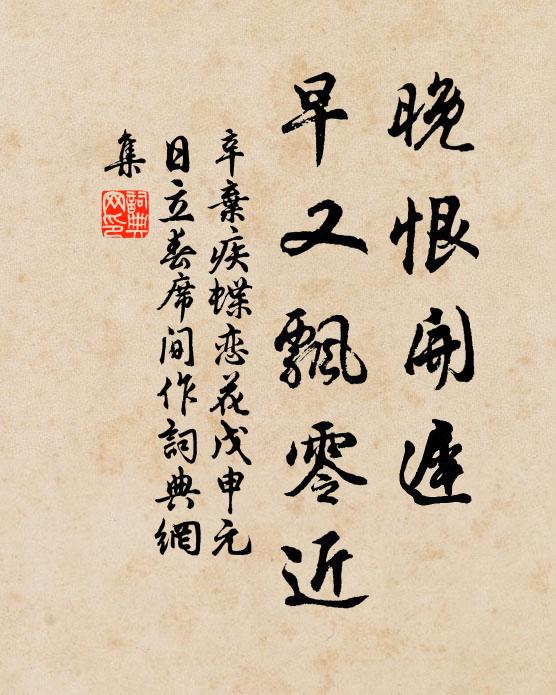 晚恨開遲
早又飄零近
辛棄疾蝶恋花戊申元
日立春席间作詞典網
集
詞典
网印